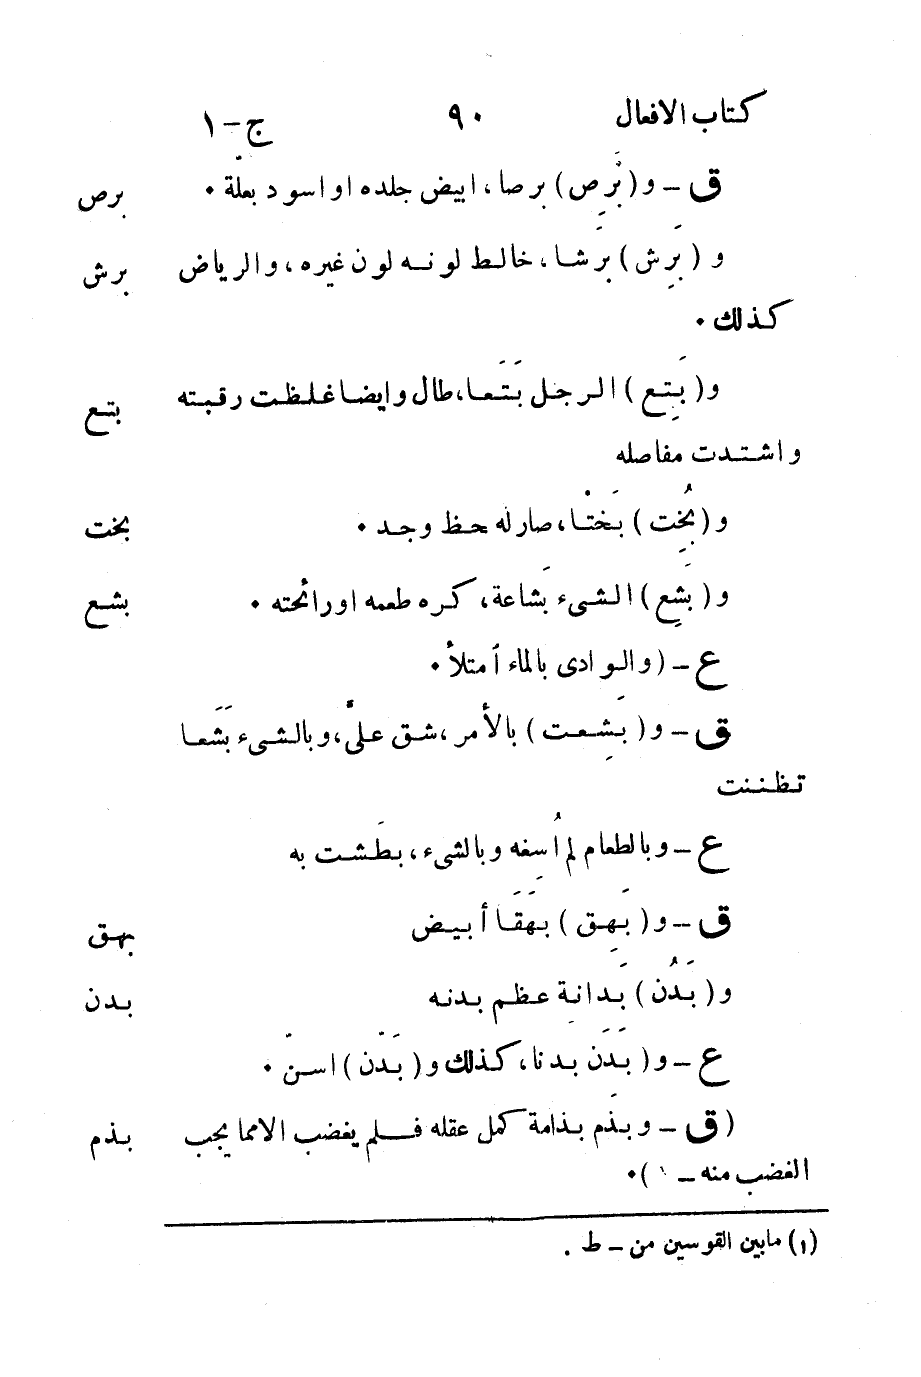 كتاب الافعال ٩٠ ج-١
ق - و (بَرِص) برصا، ابيض جلده او اسود بعلّة . برص
و (بَرِش) بَرَشا، خالط لونه لون غيره، والرياض برش
كذلك .
و (بَتِع) الرجل بَتَعا، طال وايضا غلظت رقبته بتع
واشتدت مفاصله
و (بُخِت) بَخْتا، صار له حظ وجد . بخت
و (بَشِع) الشىء بَشاعة، كره طعمه او رائحته . بشع
ع - (والوادى بالماء أمتلأ .
ق - و (بَشِعت) بالأمر، شق علىّ، وبالشىء بَشَعا
تظننت
ع - وبالطعام لم اُسِغه وبالشىء، بطَشت به
ق - و (بَهِق) بَهَقا أبيض بهق
و (بَدُن) بَدانة عظم بدنه بدن
ع - و (بَدَن بدنا، كذلك و (بَدّن) اسنّ .
(ق - وبذَم بذامة كمل عقله فلم يغضب الامما يجب بذم
الغضب منه - ١) .
(١) مابين القوسين من - ط .